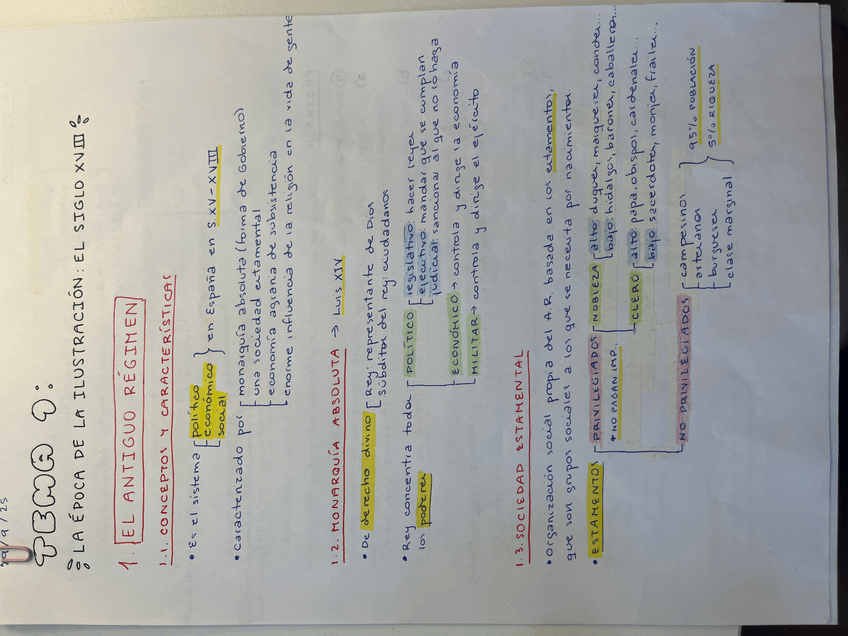 29/9/25
TEMA 1:
LA ÉPOCA DE LA ILUSTRACIÓN: EL SIGLO XVIII
1. EL ANTIGUO RÉGIMEN
1.1. CONCEPTOS Y CARACTERÍSTICAS
• Es el sistema político
económico
social
en España en S.XV-XVIII
• Caracterizado por monarquía absoluta (forma de Gobierno)
una sociedad estamental
economía agraria de subsistencia
enorme influencia de la religión en la vida de gente
1.2. MONARQUÍA ABSOLUTA → LUIS XIV
• De derecho divino Rey: representante de Dios
súbditos del rey: ciudadanos
• Rey concentra todos
los poderes
POLÍTICO legislativo: hacer leyes
ejecutivo: mandar que se cumplan
judicial: sancionar al que no lo haga
ECONÓMICO → controla y dirige la economía
MILITAR → controla y dirige el ejército
1.3. SOCIEDAD ESTAMENTAL
• Organización social propia del A.R. basada en los estamentos,
que son grupos sociales a los que se necesita por nacimientos
• ESTAMENTOS PRIVILEGIADOS NOBLEZA alto: duques, marqueses, condes...
bajo: hidalgos, barones, caballeros...
* NO PAGAN IMP.
CLERO alto: papa, obispos, cardenales...
bajo: sacerdotes, monjes, frailes...
NO PRIVILEGIADOS campesinos
artesanos
burgueses
clase marginal
95% POBLACIÓN
5% RIQUEZA